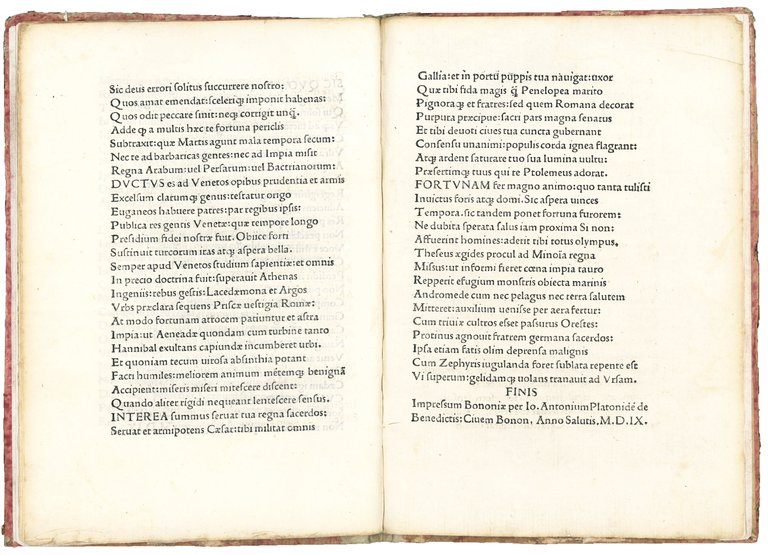 Sic deus errori solitus succurrere nostro:
Quos amat emendat: sceleriqꝫ imponit habenas:
Quos odit peccare sinit: neqꝫ corrigit unq̄.
Adde qꝫ a multis hæc te fortuna periclis
Subtraxit: quæ Martis agunt mala tempora secum:
Nec te ad barbaricas gentes: nec ad Impia misit
Regna Arabum: uel Persarum: uel Bactrianorum:
DVCTVS es ad Venetos opibus prudentia et armis
Excelsum clatumqꝫ genus: testatur origo
Euganeos habuere patres: par regibus ipsis:
Publica res gentis Venetæ: quæ tempore longo
Presidium fidei nostræ fuit. Obiice forti
Sustinuit turcorum iras atqꝫ aspera bella.
Semper apud Venetos studium sapientiæ: et omnis
In precio doctrina fuit: superauit Athenas
Ingeniis: rebus gestis: Lacedæmona et Argos
Vrbs præclara sequens Priscæ uestigia Romæ:
At modo fortunam atrocem patiuntur et astra
Impia: ut Aeneadæ quondam cum turbine tanto
Hannibal exultans capiundæ incumberet urbi.
Et quoniam tecum uirosa absinthia potant
Facti humiles: meliorem animum mētemqꝫ benignā
Accipient: miseris miseri mitescere discent:
Quando aliter rigidi nequeant lentescere sensus.
INTEREA summus seruat tua regna sacerdos:
Seruat et armipotens Cæsar: tibi militat omnis
Gallia: et in portū pūppis tua nàuigat: uxor
Quæ tibi fida magis q̄ Penelopea marito
Pignoraqꝫ et fratres: sed quem Romana decorat
Purpura præcipue: sacri pars magna senatus
Et tibi deuoti ciues tua cuncta gubernant
Consensu unanimi: populi corda ignea flagrant:
Atqꝫ ardent saturare tuo sua lumina uultu:
Præsertimqꝫ tuus qui te Ptolemeus adorat.
FORTVNAM fer magno animo: quo tanta tulisti
Inuictus foris atqꝫ domi. Sic aspera uinces
Tempora. sic tandem ponet fortuna furorem:
Ne dubita sperata salus iam proxima Si non:
Affuerint homines: aderit tibi totus olympus.
Theseus ægides procul ad Minoīa regna
Missus: ut informi fieret cœna impia tauro
Repperit efugium monstris obiecta marinis
Andromede cum nec pelagus nec terra salutem
Mitteret: auxilium uenisse per aera fertur:
Cum triuiæ cultros esset passurus Orestes:
Protinus agnouit fratrem germana sacerdos:
Ipsa etiam fatis olim deprensa malignis
Cum Zephyris iugulanda foret sublata repente est
Vi superum: gelidamqꝫ uolans tranauit ad Vrsam.
FINIS
Impressum Bononiæ per Io. Antonium Platonidē de
Benedictis: Ciuem Bonon. Anno Salutis. M.D.IX.